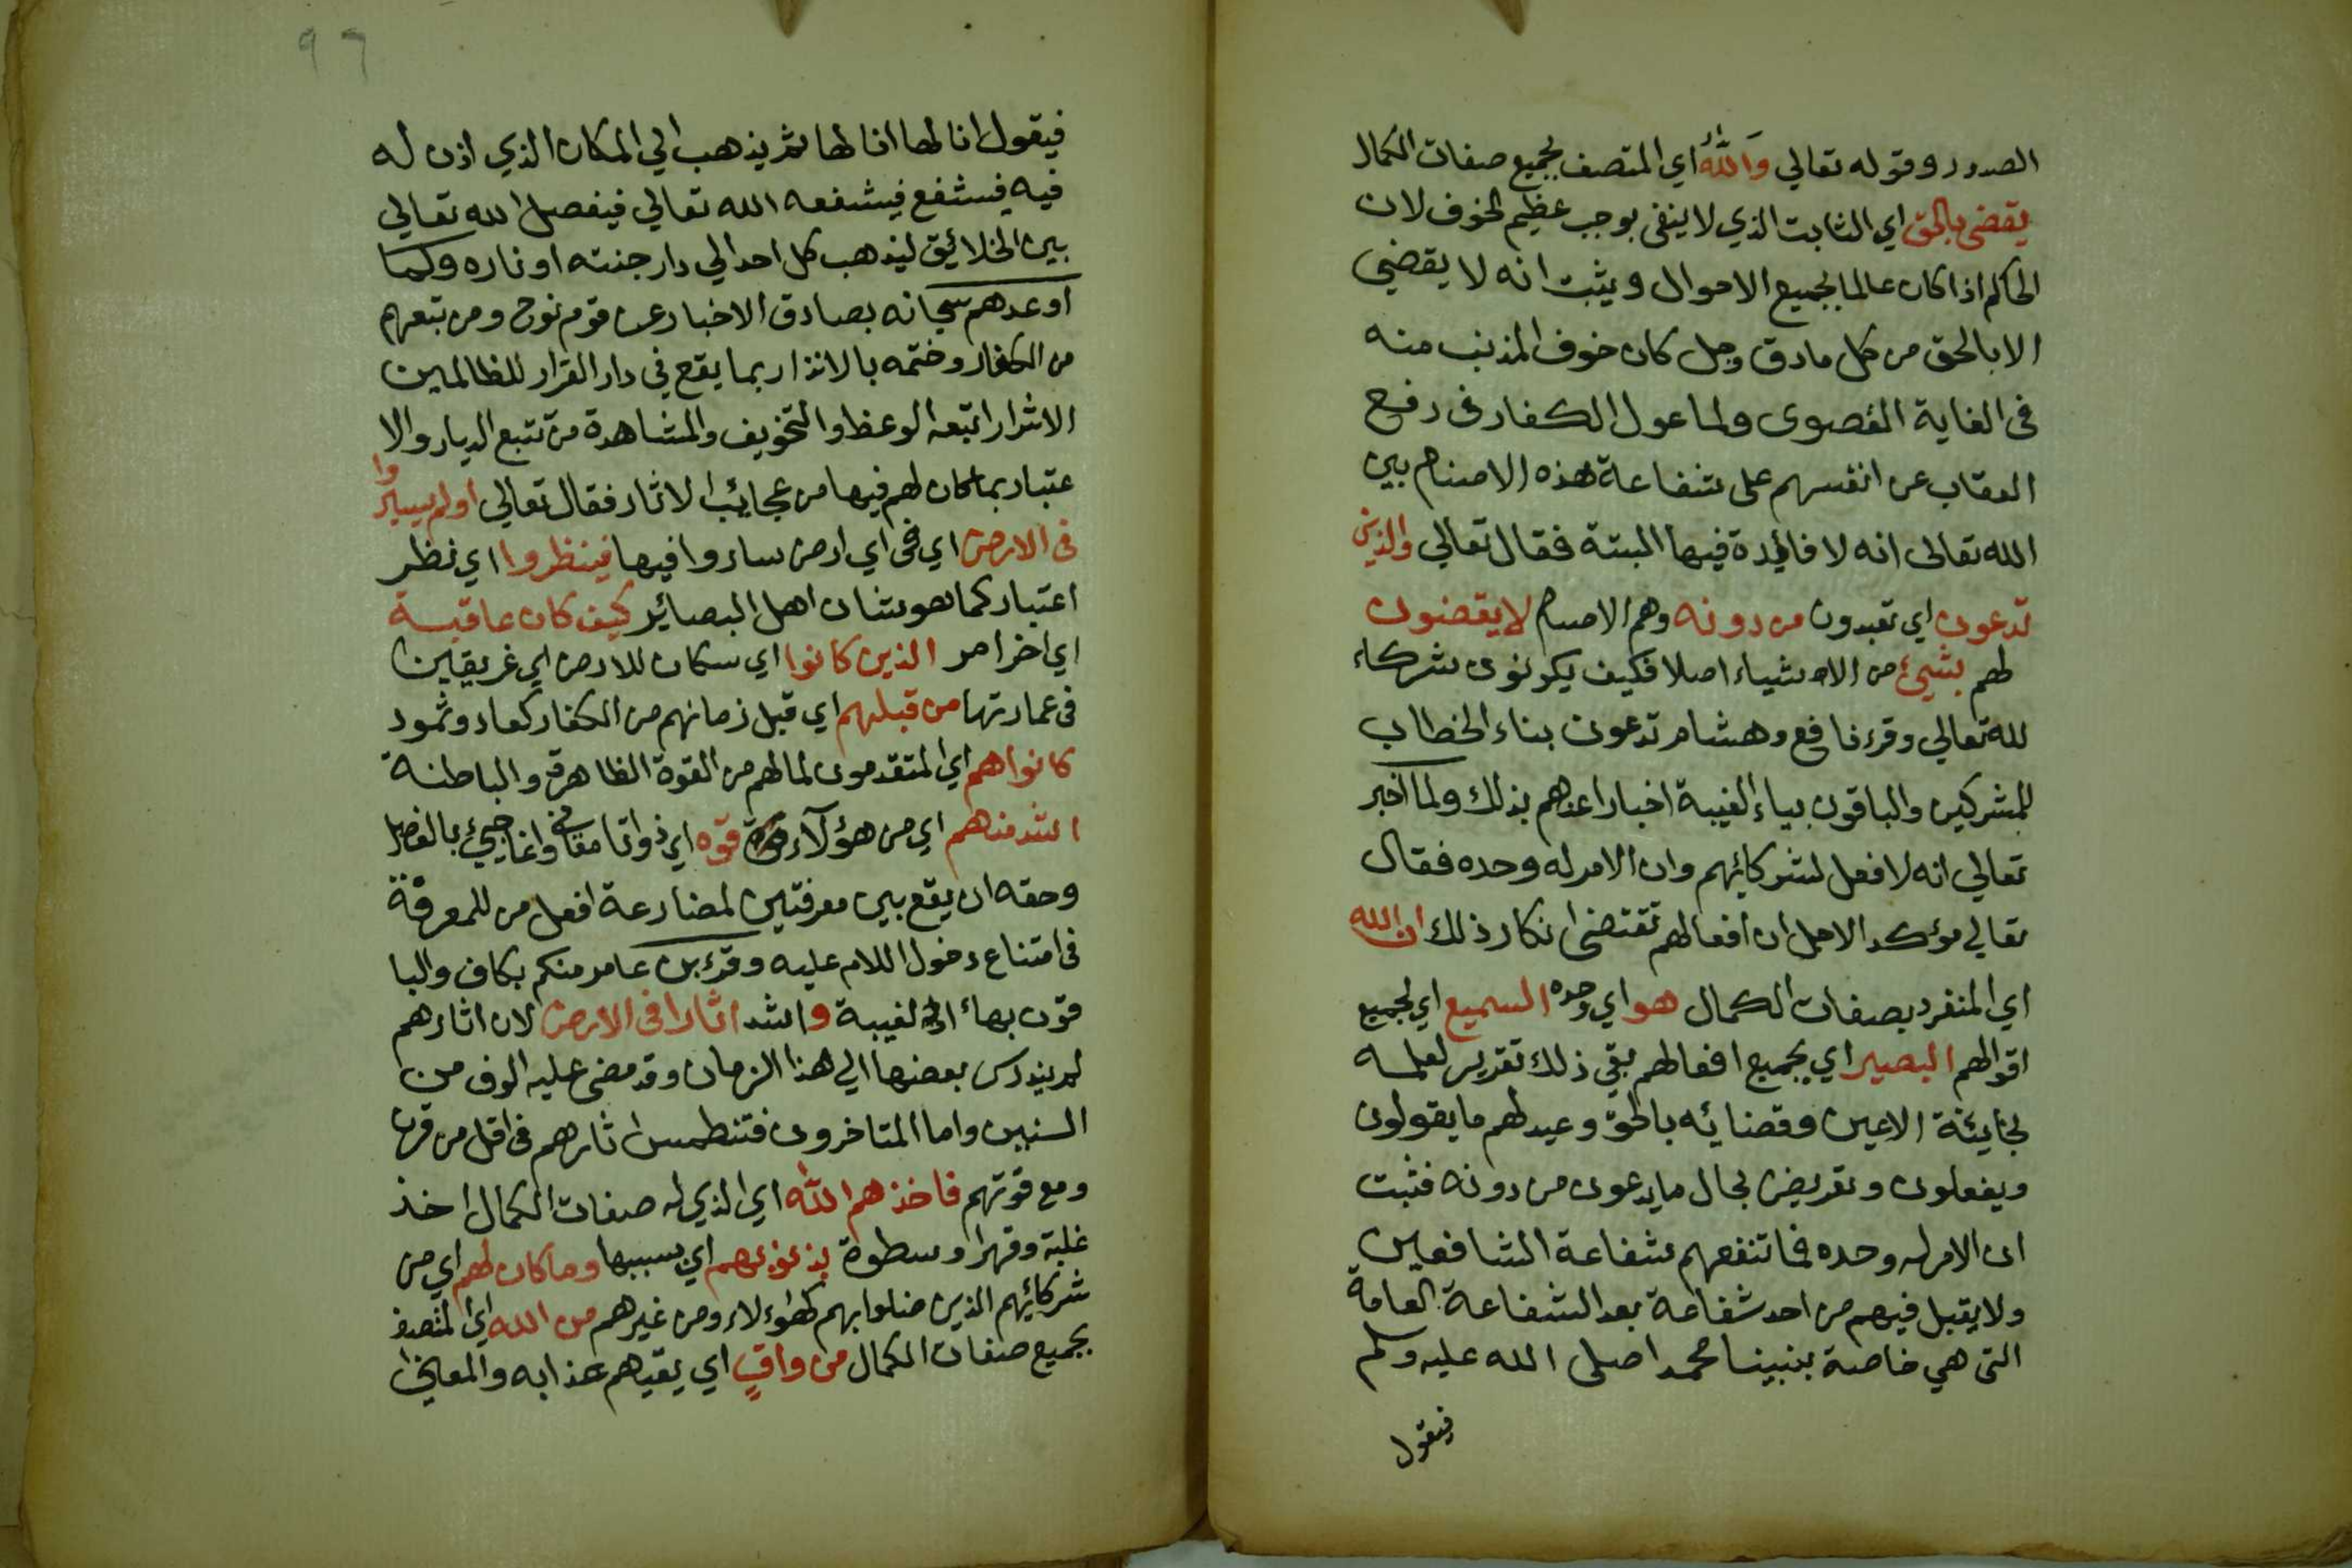 الصدور وقوله تعالي والله اي المتصف بجميع صفات الكمال
يقضي بالحق اي الثابت الذي لا ينفي بوجب عظيم الخوف لان
الحاكم اذا كان عالما بجميع الاحوال ويثبت انه لا يقضي
الا بالحق من كل مادق وجل كان خوف المذنب منه
في الغاية القصوى ولما عول الكفار في دفع
العقاب عن انفسهم على شفاعة هذه الاصنام بين
الله تعالى انه لا فائدة فيها البتة فقال تعالي والذين
تدعون اي تعبدون من دونه وهم الاصنام لا يقضون
لهم بشيئ من الاشياء اصلا فكيف يكونون شركاء
لله تعالي وقرء نافع وهشام تدعون بتاء الخطاب
للمشركين والباقون بياء الغيبة اخبارا عنهم بذلك ولما اخبر
تعالي انه لا فعل لشركائهم وان الامر له وحده فقال
تعالي مؤكد الاجل ان افعالهم تقتضي انكار ذلك ان الله
اي المنفرد بصفات الكمال هو اي وحده السميع اي لجميع
اقوالهم البصير اي بجميع افعالهم بقي ذلك تقرير لعلمه
بخائنة الاعين وقضائه بالحق وعيد لهم ما يقولون
ويفعلون وتعريض بحال ما يدعون من دونه فثبت
ان الامر له وحده فما تنفعهم شفاعة الشافعين
ولا يقبل فيهم من احد شفاعة بعد الشفاعة العامة
التي هي خاصة بنبينا محمد اصلى الله عليه وسلم
فيقول
٩٦
فيقول انا لها انا لها ثم يذهب الي المكان الذي اذن له
فيه فيشفع فيشفعه الله تعالي فيفصل الله تعالي
بين الخلائق ليذهب كل احد الي دار جنته او ناره وكما
اوعدهم سبحانه بصادق الاخبار عن قوم نوح ومن تبعهم
من الكفار وختمه بالانذار بما يقع في دار القرار للظالمين
الاشرار اتبعه الوعظ والتخويف والمشاهدة من تتبع الديار والا
عتبار بما كان لهم فيها من عجائب الاثار فقال تعالي اولم يسيروا
في الارض اي في اي ارض ساروا فيها فينظروا اي نظر
اعتبار كما هو شان اهل البصائر كيف كان عاقبة
اي اخر امر الذين كانوا اي سكان للارض اي غريقين
في عمارتها من قبلهم اي قبل زمانهم من الكفار كعاد وثمود
كانوا هم اي المتقدمون لما لهم من القوة الظاهرة والباطنة
اشد منهم اي من هؤلآء قوه اي ذواتا ومعاني وانما جيئ بالفصل
وحقه ان يقع بين معرفتين لمضارعة افعل من للمعرفة
في امتناع دخول اللام عليه وقرء بن عامر منكم بكاف والبا
قون بهاء الغيبة واشد اثارا في الارض لان اثارهم
لم يندرس بعضها الي هذا الزمان وقد مضى عليه الوف من
السنين واما المتاخرون فتنطمس اثارهم في اقل من قرن
ومع قوتهم فاخذهم الله اي الذي له صفات الكمال اخذ
غلبة وقهرا وسطوة بذنوبهم اي بسببها وما كان لهم اي من
شركائهم الذين ضلوا بهم كهؤلاء ومن غيرهم من الله اي المتصف
بجميع صفات الكمال من واق اي يقيهم عذابه والمعنى